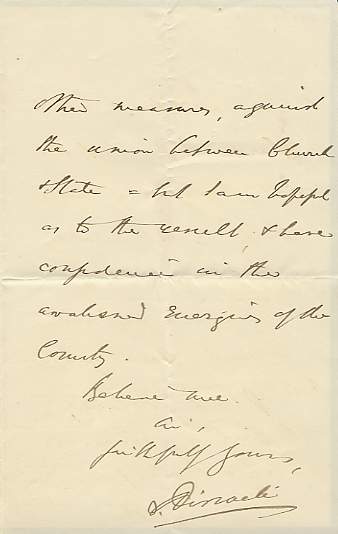 other measures, against
the union between Church
& State = but I am hopeful
as to the result, & have
confidence in the
awakened energies of the
Country.
Believe me.
Sir,
faithfully yours,
B. Disraeli